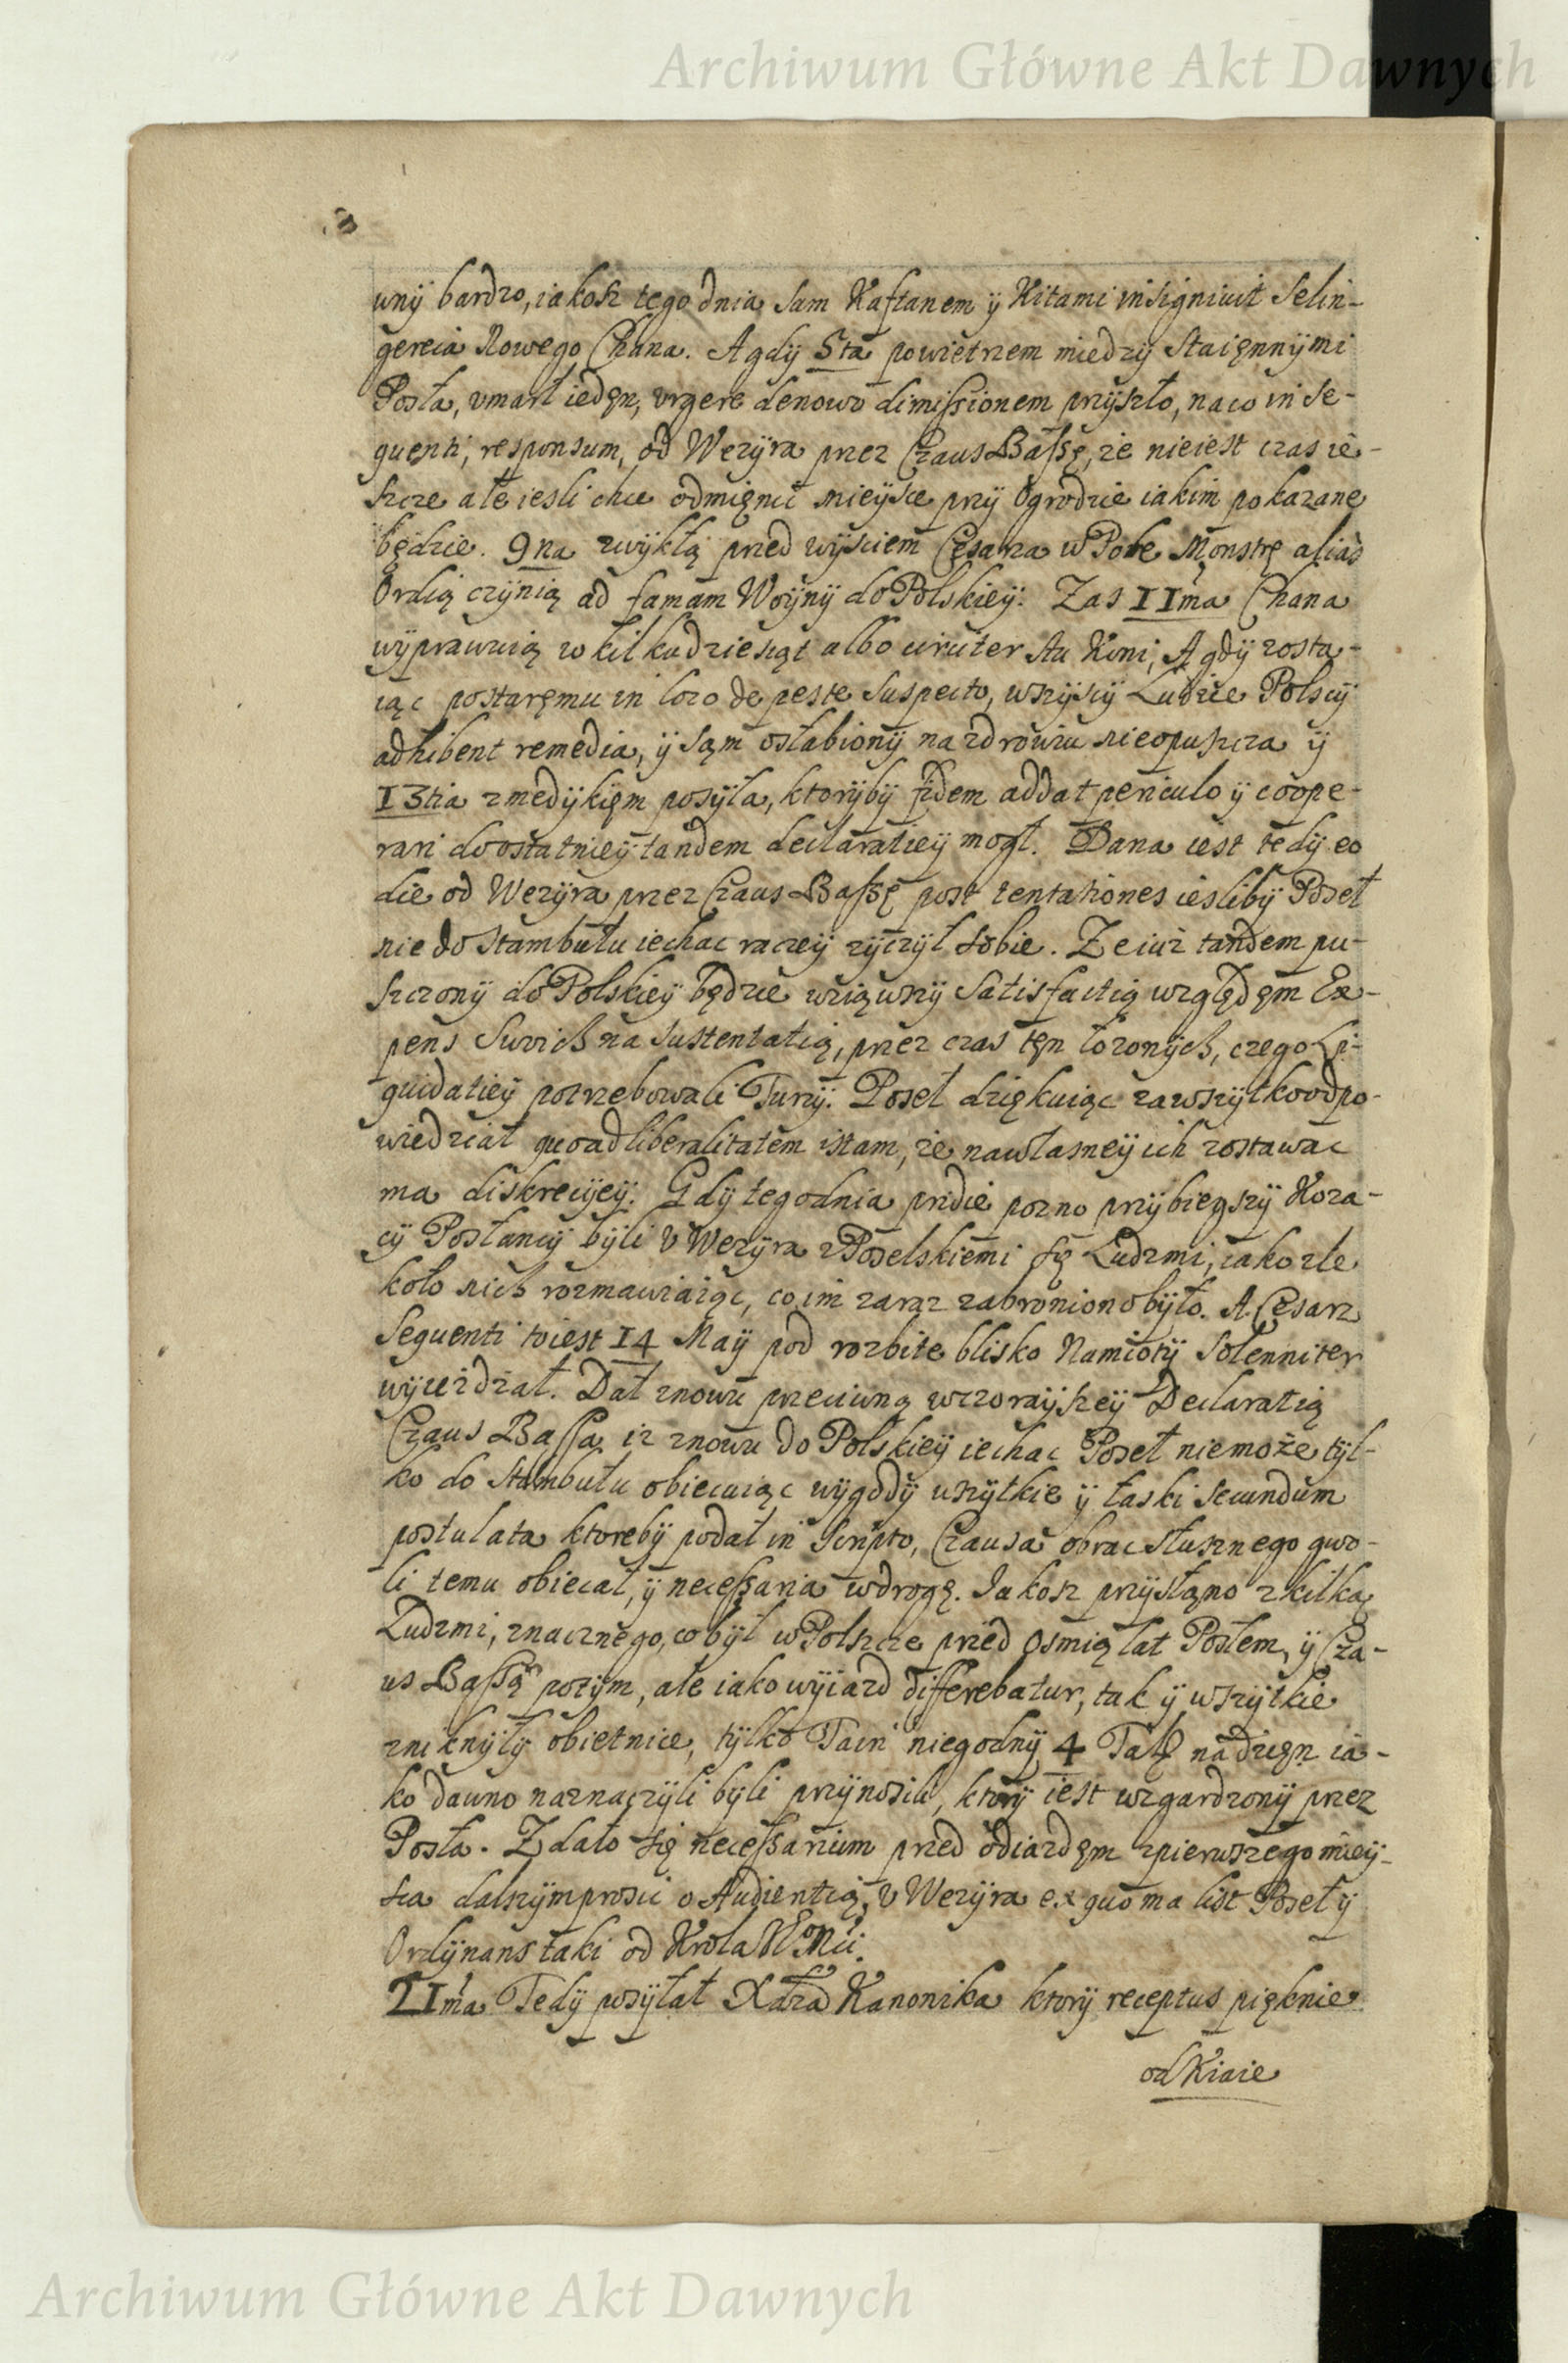 Archiwum Główne Akt Dawnych
unÿ bardzo, iakosz tego dnia sam Kaftanem ÿ Kitami insigniuit Selin-
gereia Nowego Chana. A gdÿ 5ta powietrzem miedzÿ Staięnnÿmi
Posła, vmarł iedęn, vrgere denowo dimissionem przÿszło, naco in se-
quenti, responsum, od Wezÿra przez Czaus Baszę, że nieiest czas ie-
szcze ale iesli chce odmięnić mieÿsce przÿ Ogrodzie iakim pokazane
będzie. 9na zwÿkłą przed wÿsciem Cesarza w Pole Monstrę alias
Ordią czÿnią ad famam Woÿnÿ do Polskieÿ. Zas 11ma Chana
wÿprawuią w kilkudziesiąt albo circiter stu Koni, A gdÿ zosta-
iąc postaręmu in loco de peste suspecto, wszÿscÿ Ludzie Polscÿ
adhibent remedia, ÿ sąm osłabionÿ na zdrowiu nieopuszcza ÿ
13tia z medÿkięm posÿła, ktorÿbÿ fidem addat periculo ÿ coope-
rari do ostatnieÿ tandem declaratieÿ mogł. Dana iest tedÿ eo
die od Wezÿra przez Czaus Baszę post tentationes iesliby Poseł
nie do Stambułu iechac raczeÿ zÿczÿł sobie. Ze iuż tandem pu-
szczonÿ do Polskieÿ będzie wziąwszÿ Satisfactią względęm Ex-
pens Swoich na sustentatią, przez czas tęn łożonÿch, czego Li-
quidatieÿ potrzebowali Turcÿ. Poseł dziękuiąc zawszÿtko odpo-
wiedział quoad liberalitatem istam, że na własneÿ ich zostawac
ma diskrecÿeÿ. Gdÿ tegodnia pridie pozno przÿbiegszÿ Koza-
cÿ Posłancÿ bÿli v Wezÿra z Poselskiemi się Ludzmi, iako źle
koło nich rozmawiaiąc, co im zaraz zabroniono bÿło. A Cesarz
Sequenti toiest 14 Maÿ pod rozbite blisko Namiotÿ Solenniter
wÿieżdżał. Dał znowu przeciwną wczoraÿszeÿ Declaratią
Czaus Bassa iż znowu do Polskieÿ iechac Poseł niemoże tÿl-
ko do Stambułu obiecuiąc wÿgodÿ wszÿtkie ÿ łaski secundum
postulata ktorebÿ podał in Scripto, Czausa obrac słusznego gwo-
li temu obiecał, ÿ necessaria w drogę. Iakosz przÿsłąno z kilką
Ludzmi, znacznego, co bÿł w Polszcze przed osmią lat Posłem, ÿ Cza-
us Baszą potÿm, ale iako wÿiazd differebatur, tak ÿ wszÿtkie
zniknÿłÿ obietnice, tÿlko Tain niegodnÿ 4 Tal na dzięn ia-
ko dawno naznaczÿli bÿli przÿnosili, ktorÿ iest wzgardzonÿ przez
Posła. Zdało się necessarium przed odiazdęm z pierwszego mieÿ-
sca dalszÿm prosić o Audientią v Wezÿra ex quo ma list Poseł ÿ
Ordÿnans taki od Krola
21ma Tedÿ posÿłał Kanonika ktorÿ receptus pięknie
od Kiaie
Archiwum Główne Akt Dawnych